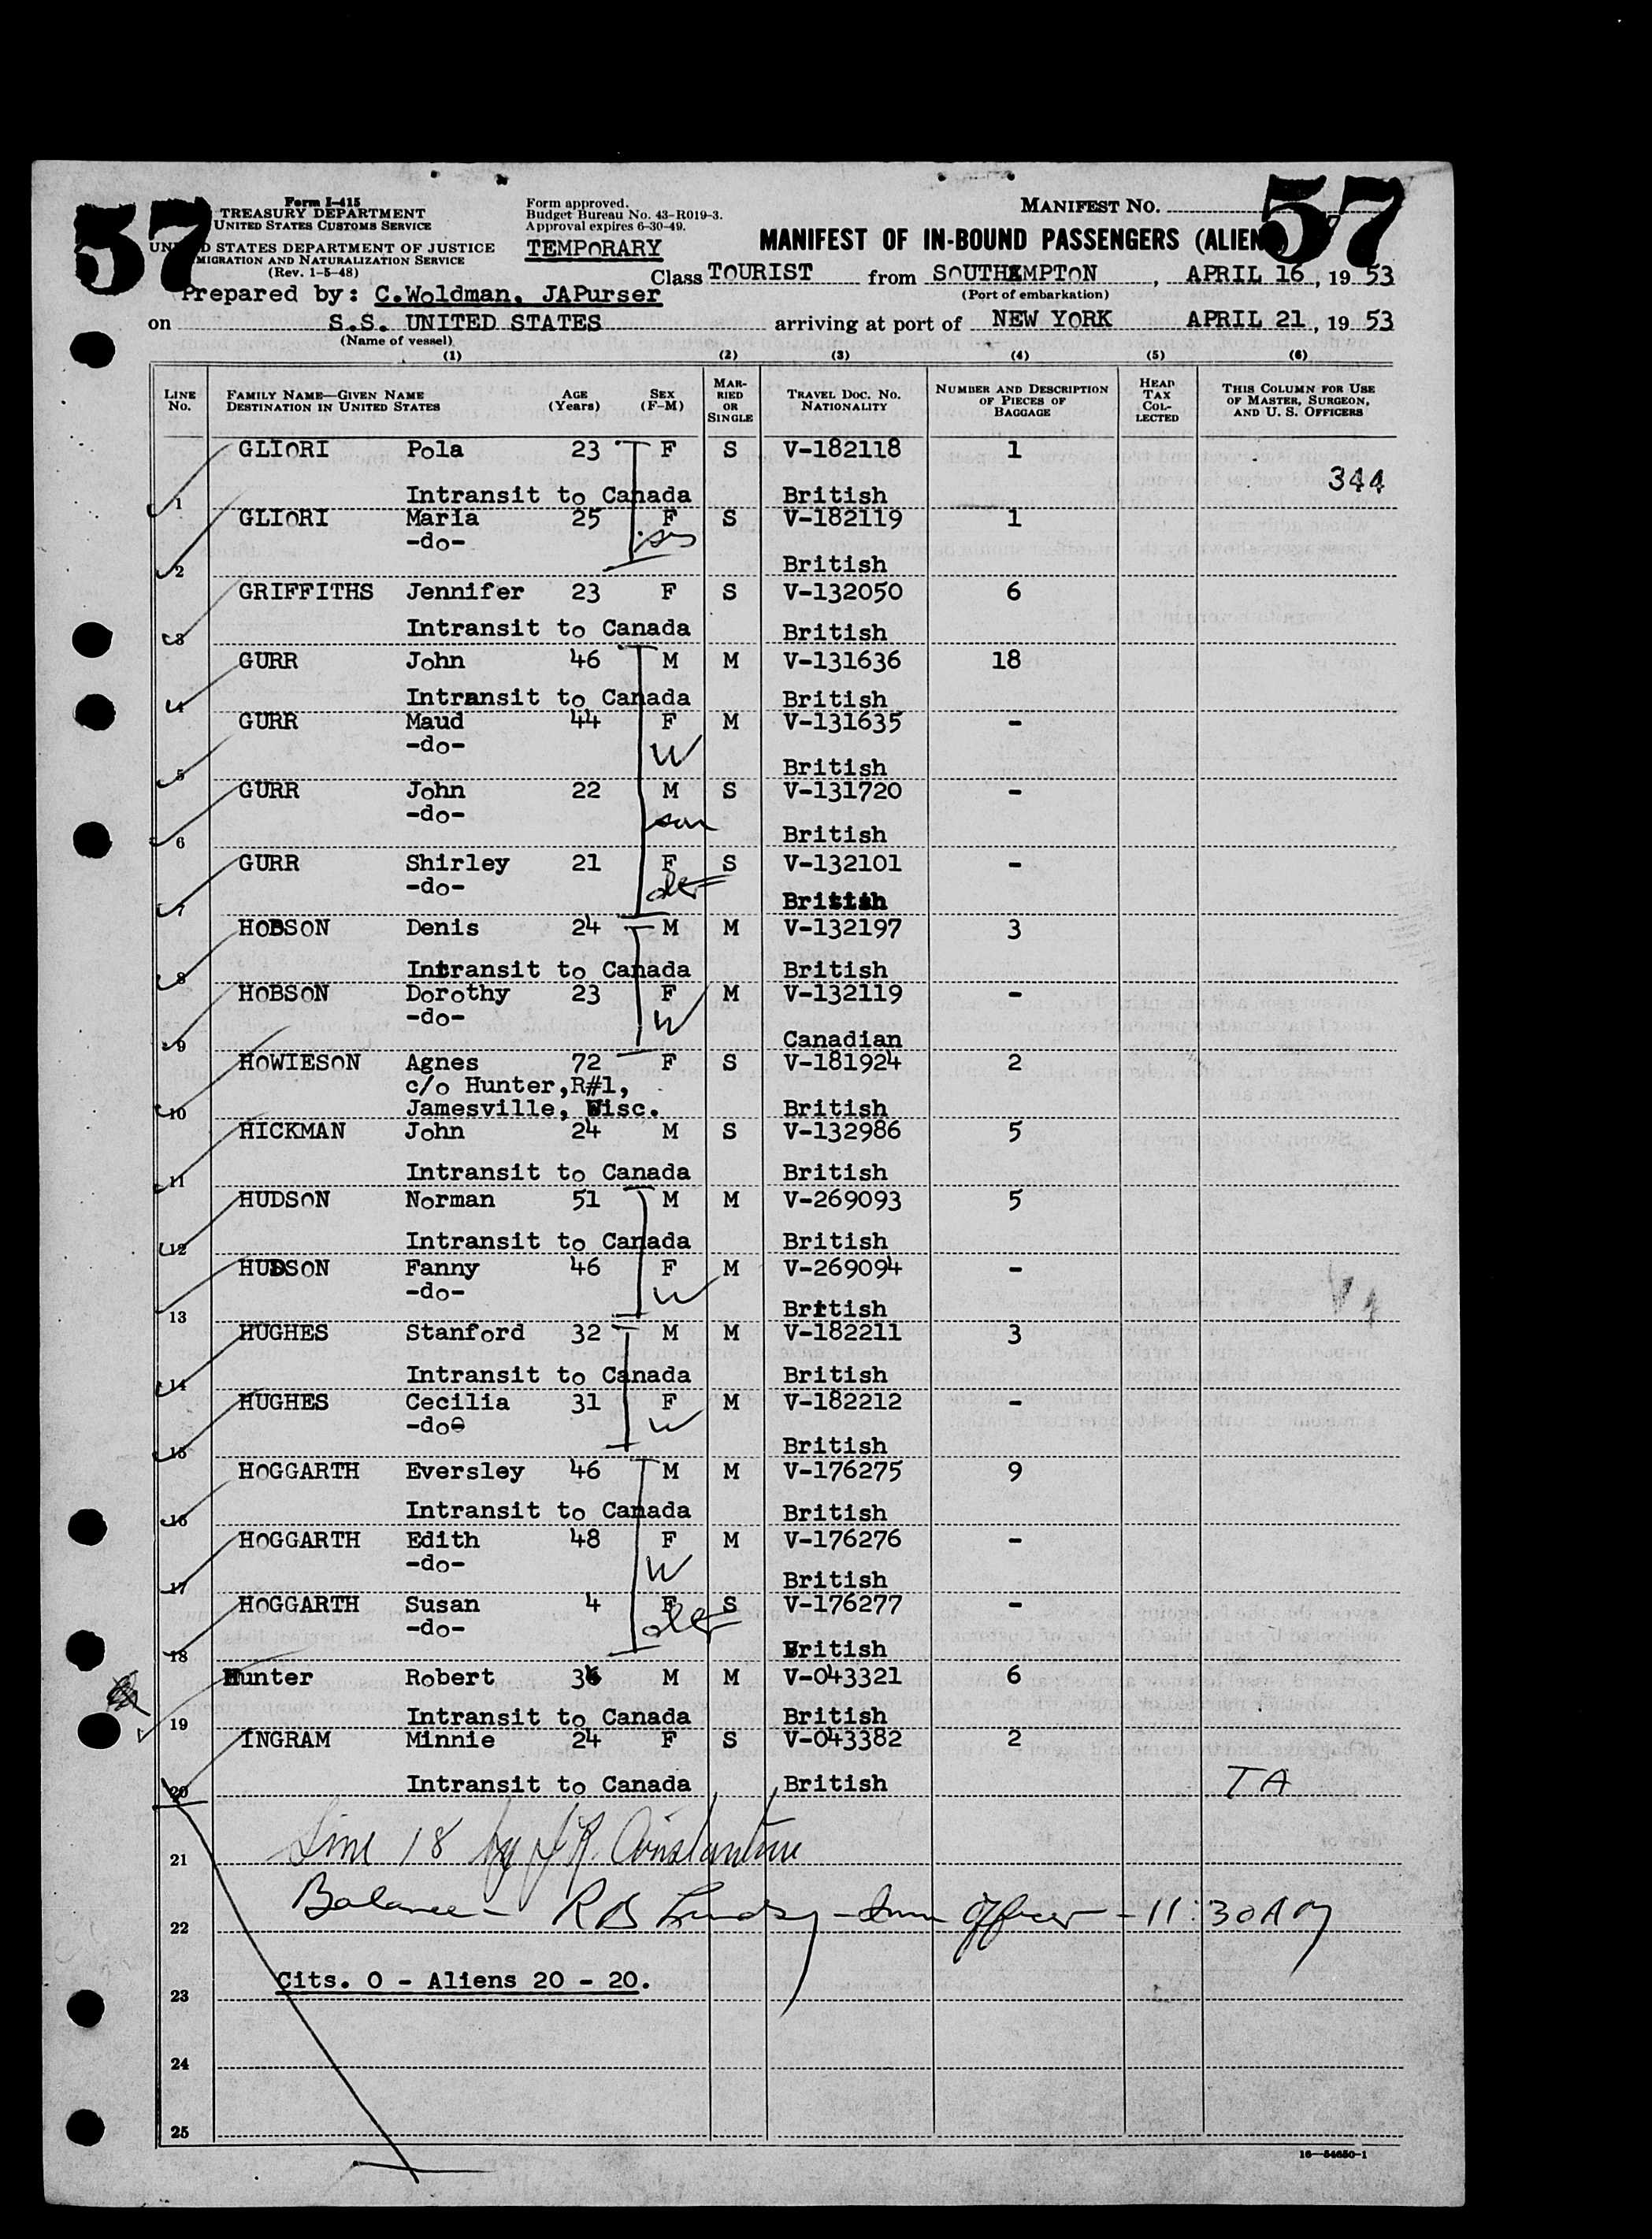 57
57
Form I-415
TREASURY DEPARTMENT
UNITED STATES CUSTOMS SERVICE
STATES DEPARTMENT OF JUSTICE
MIGRATION AND NATURALIZATION SERVICE
(Rev. 1-5-48)
Form approved.
Budget Bureau No. 43-R019-3.
Approval expires 6-30-49.
TEMPORARY
MANIFEST NO.
MANIFEST OF IN-BOUND PASSENGERS (ALIEN
Class TOURIST from SOUTHAMPTON, APRIL 16, 19 53
(Port of embarkation)
Prepared by: C.Woldman, JAPurser
on S.S. UNITED STATES arriving at port of NEW YORK APRIL 21, 19 53
(Name of vessel)
(1) (2) (3) (4) (5) (6)
LINE No. FAMILY NAME—GIVEN NAME DESTINATION IN UNITED STATES AGE (Years) SEX (F-M) MAR-RIED OR SINGLE TRAVEL DOC. NO. NATIONALITY NUMBER AND DESCRIPTION OF PIECES OF BAGGAGE HEAD TAX COL-LECTED THIS COLUMN FOR USE OF MASTER, SURGEON, AND U. S. OFFICERS
GLIORI Pola 23 F S V-182118 1
344
1 Intransit to Canada British
GLIORI Maria 25 F S V-182119 1
-do- sis
2 British
GRIFFITHS Jennifer 23 F S V-132050 6
3 Intransit to Canada British
GURR John 46 M M V-131636 18
4 Intransit to Canada British
GURR Maud 44 F M V-131635 -
-do- W
5 British
GURR John 22 M S V-131720 -
-do- son
6 British
GURR Shirley 21 F S V-132101 -
-do- dtr
7 British
HOBSON Denis 24 M M V-132197 3
8 Intransit to Canada British
HOBSON Dorothy 23 F M V-132119 -
-do- W
9 Canadian
HOWIESON Agnes 72 F S V-181924 2
c/o Hunter,R#1,
10 Jamesville, Wisc. British
HICKMAN John 24 M S V-132986 5
11 Intransit to Canada British
HUDSON Norman 51 M M V-269093 5
12 Intransit to Canada British
HUDSON Fanny 46 F M V-269094 -
-do- W
13 British
HUGHES Stanford 32 M M V-182211 3
14 Intransit to Canada British
HUGHES Cecilia 31 F M V-182212 -
-do- W
15 British
HOGGARTH Eversley 46 M M V-176275 9
16 Intransit to Canada British
HOGGARTH Edith 48 F M V-176276 -
-do- W
17 British
HOGGARTH Susan 4 F S V-176277 -
-do- dtr
18 British
Hunter Robert M M V-043321 6
19 Intransit to Canada British
INGRAM Minnie 24 F S V-043382 2
20 Intransit to Canada British TA
Line 18 by J.R. Constantine
21
Balance - R B Lindsay - Imm Officer - 11:30 AM
22
Cits. 0 - Aliens 20 - 20.
23
24
25
16—54650-1